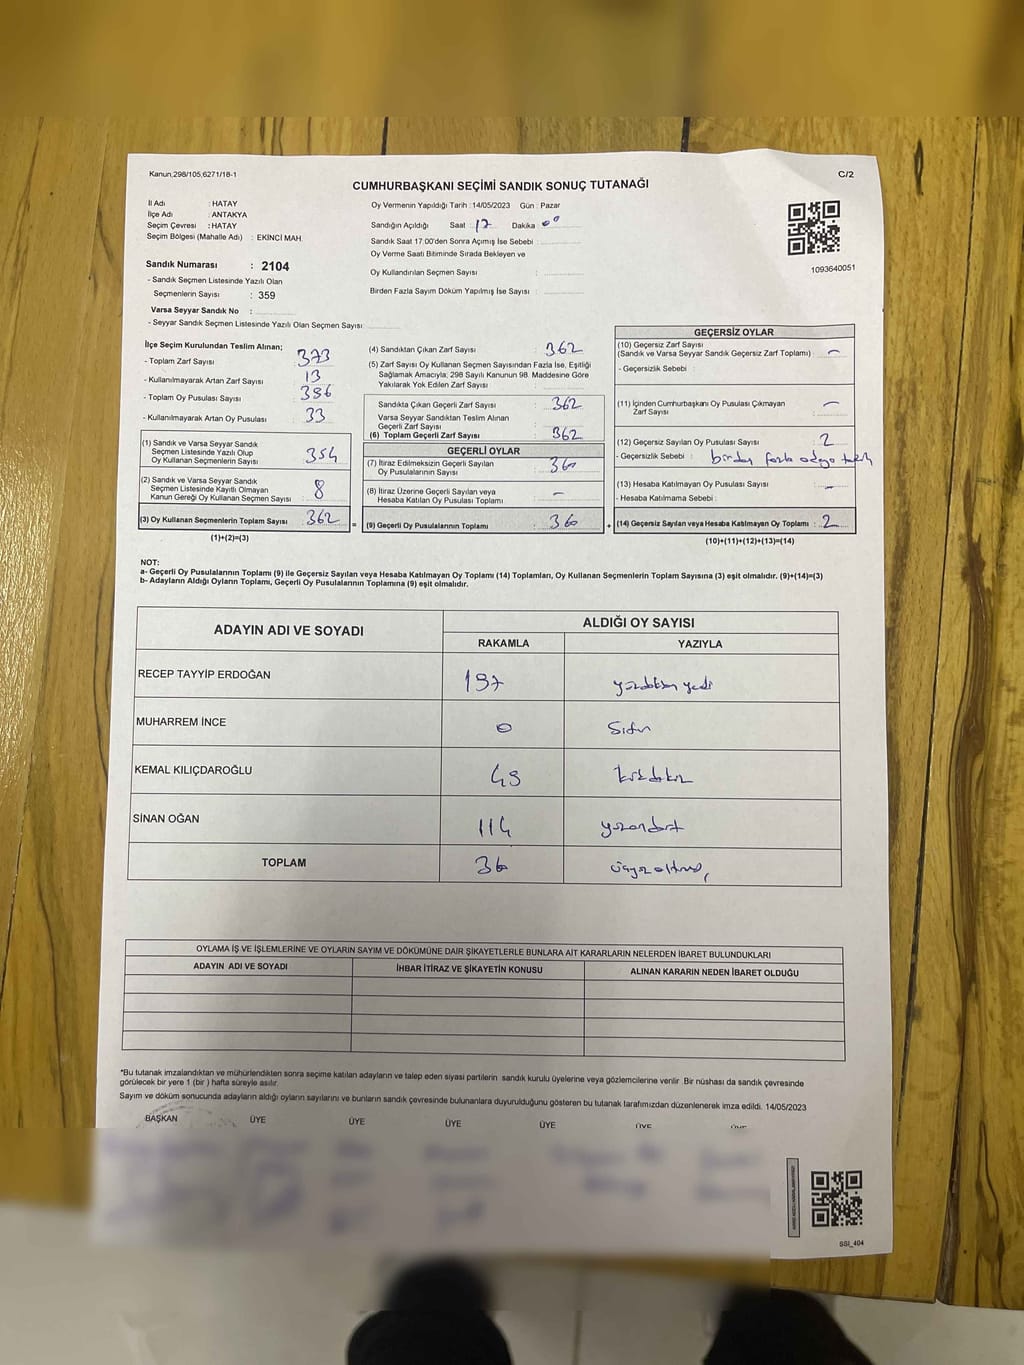 Kanun,298/105,6271/18-1
C/2
CUMHURBAŞKANI SEÇİMİ SANDIK SONUÇ TUTANAĞI
İl Adı : HATAY
İlçe Adı : ANTAKYA
Seçim Çevresi : HATAY
Seçim Bölgesi (Mahalle Adı) : EKİNCİ MAH.
Sandık Numarası : 2104
- Sandık Seçmen Listesinde Yazılı Olan
Seçmenlerin Sayısı : 359
Varsa Seyyar Sandık No :
- Seyyar Sandık Seçmen Listesinde Yazılı Olan Seçmen Sayısı:
Oy Vermenin Yapıldığı Tarih :14/05/2023 Gün : Pazar
Sandığın Açıldığı Saat 17 Dakika 00
Sandık Saat 17.00'den Sonra Açımış İse Sebebi :
Oy Verme Saati Bitiminde Sırada Bekleyen ve
Oy Kullandırılan Seçmen Sayısı :
Birden Fazla Sayım Döküm Yapılmış İse Sayısı :
1093640051
İlçe Seçim Kurulundan Teslim Alınan;
- Toplam Zarf Sayısı 373
- Kullanılmayarak Artan Zarf Sayısı 13
- Toplam Oy Pusulası Sayısı
- Kullanılmayarak Artan Oy Pusulası 33
(1) Sandık ve Varsa Seyyar Sandık
Seçmen Listesinde Yazılı Olup
Oy Kullanan Seçmenlerin Sayısı 354
(2) Sandık ve Varsa Seyyar Sandık
Seçmen Listesinde Kayıtlı Olmayan
Kanun Gereği Oy Kullanan Seçmen Sayısı 8
(3) Oy Kullanan Seçmenlerin Toplam Sayısı 362 =
(1)+(2)=(3)
(4) Sandıktan Çıkan Zarf Sayısı : 362
(5) Zarf Sayısı Oy Kullanan Seçmen Sayısından Fazla İse, Eşitliği
Sağlamak Amacıyla; 298 Sayılı Kanunun 98. Maddesine Göre
Yakılarak Yok Edilen Zarf Sayısı :
Sandıkta Çıkan Geçerli Zarf Sayısı : 362
Varsa Seyyar Sandıktan Teslim Alınan
Geçerli Zarf Sayısı :
(6) Toplam Geçerli Zarf Sayısı : 362
GEÇERLİ OYLAR
(7) İtiraz Edilmeksizin Geçerli Sayılan
Oy Pusulalarının Sayısı : 360
(8) İtiraz Üzerine Geçerli Sayılan veya
Hesaba Katılan Oy Pusulası Toplamı : -
(9) Geçerli Oy Pusulalarının Toplamı : 360 +
GEÇERSİZ OYLAR
(10) Geçersiz Zarf Sayısı
(Sandık ve Varsa Seyyar Sandık Geçersiz Zarf Toplamı) : -
- Geçersizlik Sebebi :
(11) İçinden Cumhurbaşkanı Oy Pusulası Çıkmayan
Zarf Sayısı : -
(12) Geçersiz Sayılan Oy Pusulası Sayısı : 2
- Geçersizlik Sebebi : birden fazla adaya
(13) Hesaba Katılmayan Oy Pusulası Sayısı : -
- Hesaba Katılmama Sebebi :
(14) Geçersiz Sayılan veya Hesaba Katılmayan Oy Toplamı : 2
(10)+(11)+(12)+(13)=(14)
NOT:
a- Geçerli Oy Pusulalarının Toplamı (9) ile Geçersiz Sayılan veya Hesaba Katılmayan Oy Toplamı (14) Toplamları, Oy Kullanan Seçmenlerin Toplam Sayısına (3) eşit olmalıdır. (9)+(14)=(3)
b- Adayların Aldığı Oyların Toplamı, Geçerli Oy Pusulalarının Toplamına (9) eşit olmalıdır.
ADAYIN ADI VE SOYADI
ALDIĞI OY SAYISI
RAKAMLA YAZIYLA
RECEP TAYYİP ERDOĞAN 197 yüzdoksan yedi
MUHARREM İNCE 0 Sıfır
KEMAL KILIÇDAROĞLU 49 kırkdokuz
SİNAN OĞAN 114 yüzondört
TOPLAM 360 üçyüzaltmış
OYLAMA İŞ VE İŞLEMLERİNE VE OYLARIN SAYIM VE DÖKÜMÜNE DAİR ŞİKAYETLERLE BUNLARA AİT KARARLARIN NELERDEN İBARET BULUNDUKLARI
ADAYIN ADI VE SOYADI İHBAR İTİRAZ VE ŞİKAYETİN KONUSU ALINAN KARARIN NEDEN İBARET OLDUĞU
*Bu tutanak imzalandıktan ve mühürlendikten sonra seçime katılan adayların ve talep eden siyasi partilerin sandık kurulu üyelerine veya gözlemcilerine verilir. Bir nüshası da sandık çevresinde
görülecek bir yere 1 (bir ) hafta süreyle asılır.
Sayım ve döküm sonucunda adayların aldığı oyların sayılarını ve bunların sandık çevresinde bulunanlara duyurulduğunu gösteren bu tutanak tarafımızdan düzenlenerek imza edildi. 14/05/2023
BAŞKAN ÜYE ÜYE ÜYE ÜYE ÜYE ÜYE
SSI_404